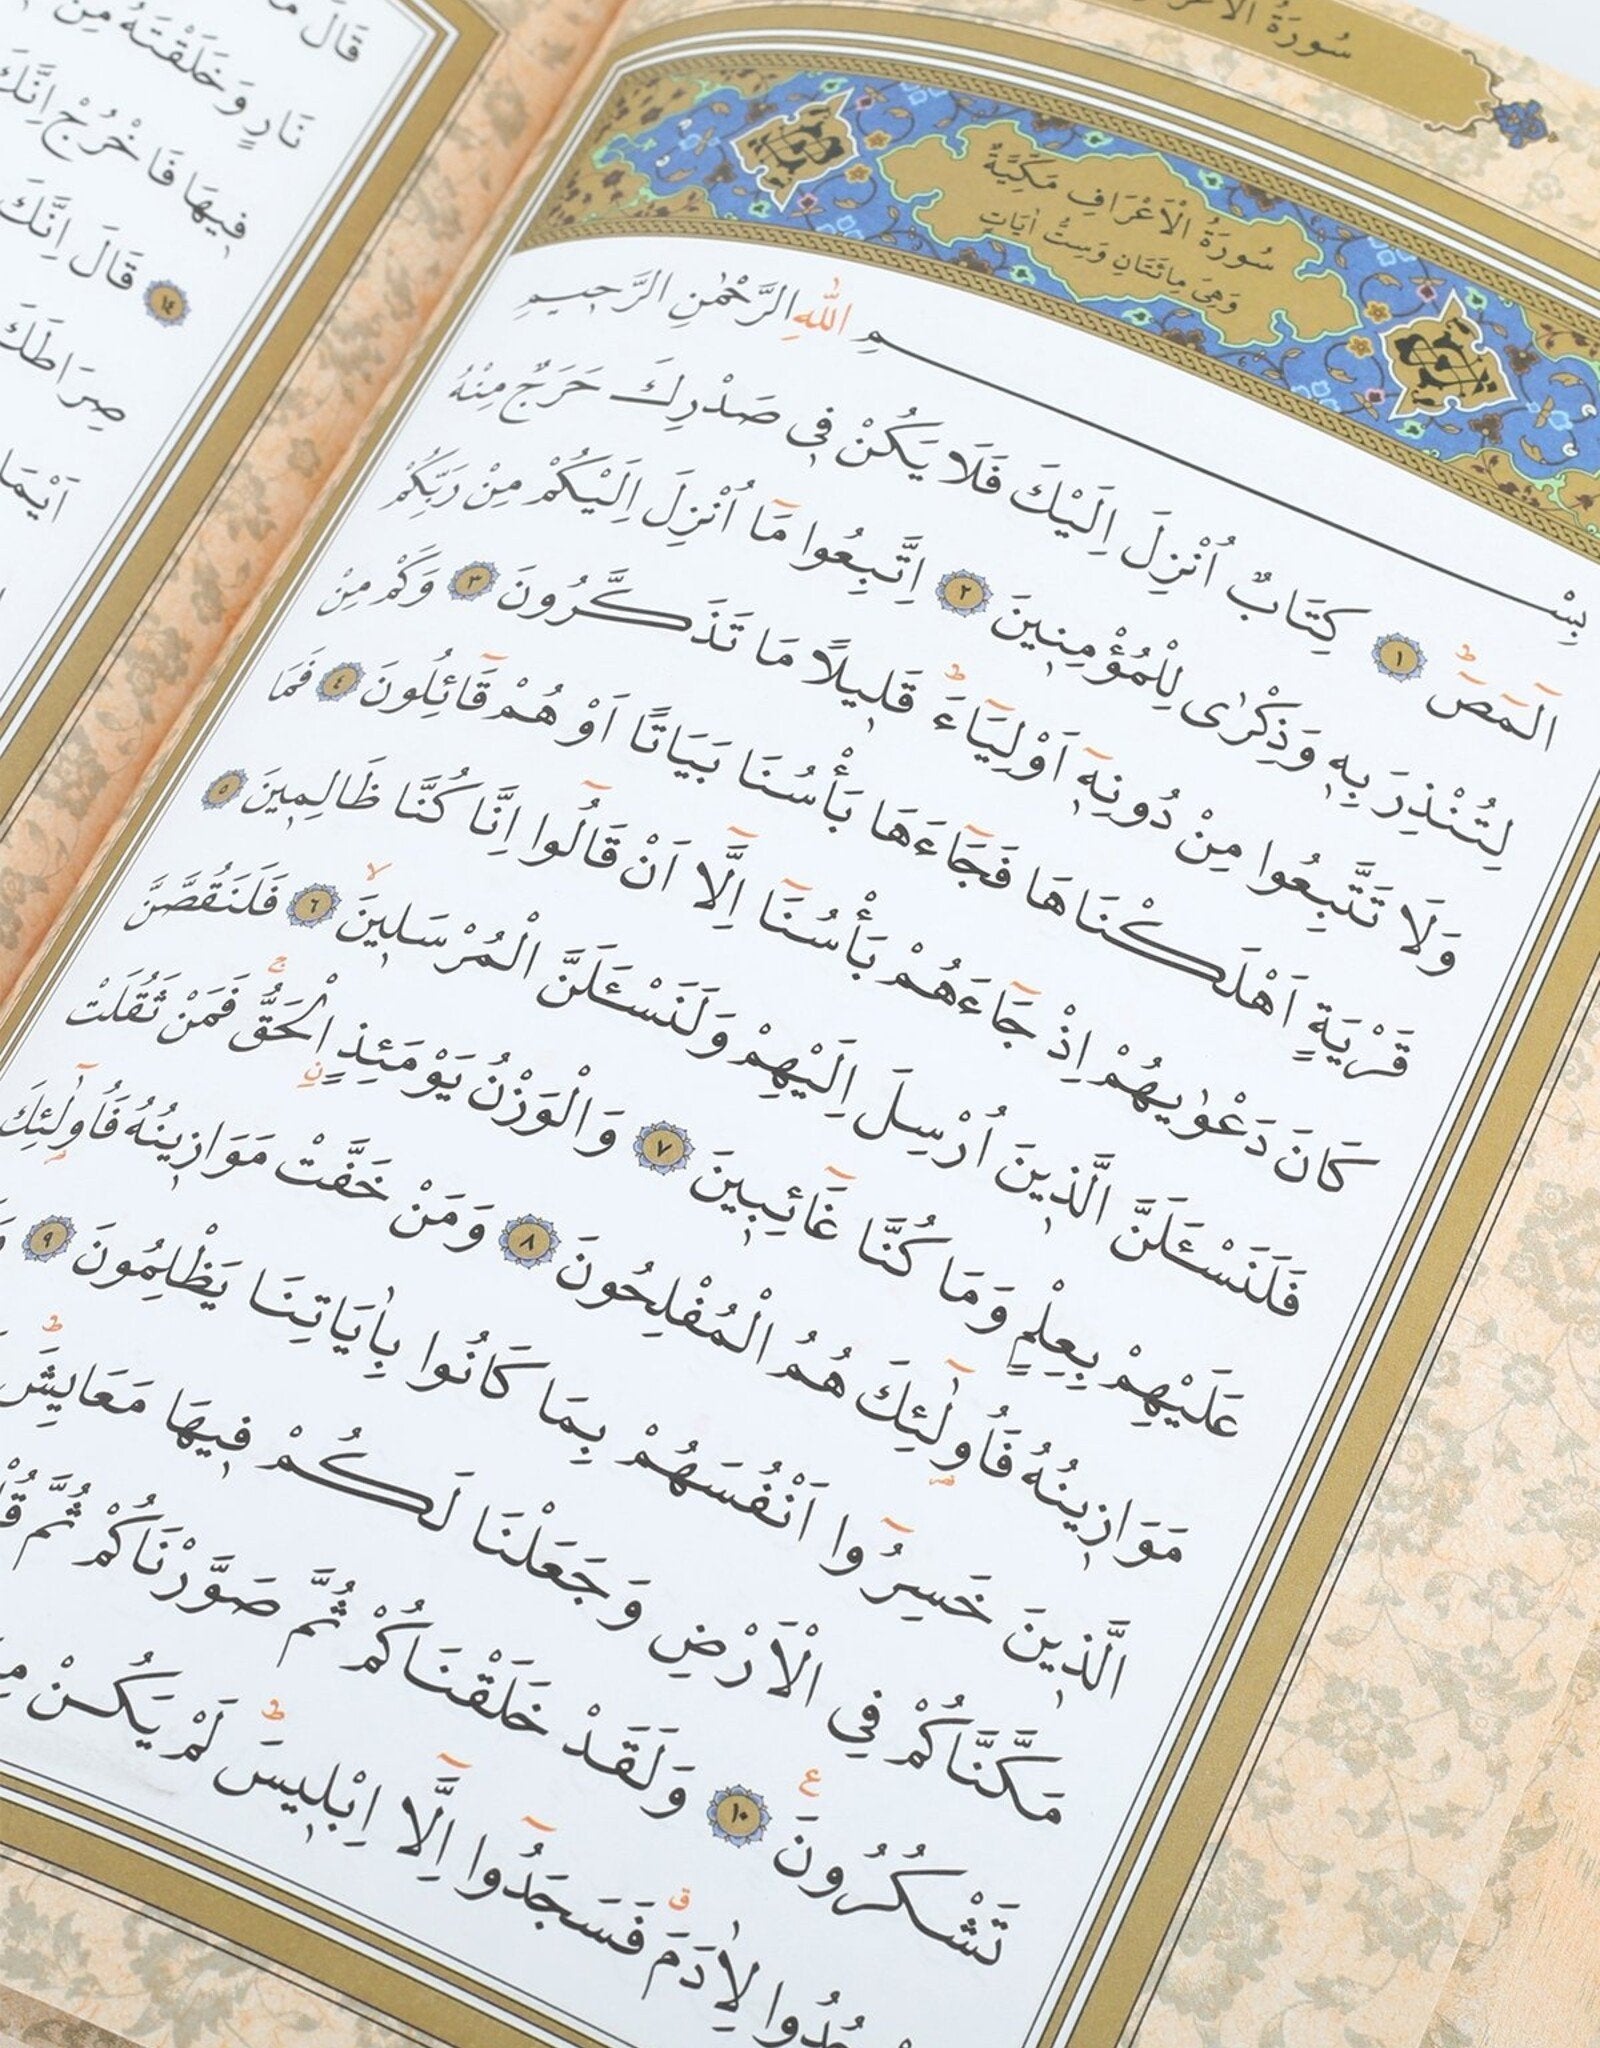 سُورَةُ الْاَعْرَافِ
سُورَةُ الْاَعْرَافِ مَكِّيَّةٌ
وَهِيَ مِائَتَانِ وَسِتُّ اٰيَاتٍ
بِسْمِ اللّٰهِ الرَّحْمٰنِ الرَّحٖيمِ
الٓمٓصٓ ﴿١﴾ كِتَابٌ اُنْزِلَ اِلَيْكَ فَلَا يَكُنْ فٖى صَدْرِكَ حَرَجٌ مِنْهُ
لِتُنْذِرَ بِهٖ وَذِكْرٰى لِلْمُؤْمِنٖينَ ﴿٢﴾ اِتَّبِعُوا مَٓا اُنْزِلَ اِلَيْكُمْ مِنْ رَبِّكُمْ
وَلَا تَتَّبِعُوا مِنْ دُونِهٖٓ اَوْلِيَٓاءَ قَلٖيلًا مَا تَذَكَّرُونَ ﴿٣﴾ وَكَمْ مِنْ
قَرْيَةٍ اَهْلَكْنَاهَا فَجَٓاءَهَا بَأْسُنَا بَيَاتًا اَوْ هُمْ قَٓائِلُونَ ﴿٤﴾ فَمَا
كَانَ دَعْوٰيهُمْ اِذْ جَٓاءَهُمْ بَأْسُنَٓا اِلَّٓا اَنْ قَالُٓوا اِنَّا كُنَّا ظَالِمٖينَ ﴿٥﴾
فَلَنَسْـَٔلَنَّ الَّذٖينَ اُرْسِلَ اِلَيْهِمْ وَلَنَسْـَٔلَنَّ الْمُرْسَلٖينَ ﴿٦﴾ فَلَنَقُصَّنَّ
عَلَيْهِمْ بِعِلْمٍ وَمَا كُنَّا غَٓائِبٖينَ ﴿٧﴾ وَالْوَزْنُ يَوْمَئِذٍ الْحَقُّ فَمَنْ ثَقُلَتْ
مَوَازٖينُهُ فَاُو۬لٰٓئِكَ هُمُ الْمُفْلِحُونَ ﴿٨﴾ وَمَنْ خَفَّتْ مَوَازٖينُهُ فَاُو۬لٰٓئِكَ
الَّذٖينَ خَسِرُٓوا اَنْفُسَهُمْ بِمَا كَانُوا بِاٰيَاتِنَا يَظْلِمُونَ ﴿٩﴾
مَكَّنَّاكُمْ فِي الْاَرْضِ وَجَعَلْنَا لَكُمْ فٖيهَا مَعَايِشَ
تَشْكُرُونَ ﴿١٠﴾ وَلَقَدْ خَلَقْنَاكُمْ ثُمَّ صَوَّرْنَاكُمْ ثُمَّ
لِاٰدَمَ فَسَجَدُٓوا اِلَّٓا اِبْلٖيسَ لَمْ يَكُنْ
قَالَ
نَارٍ وَخَلَقْتَهُ مِنْ
فٖيهَا فَاخْرُجْ اِنَّكَ
﴿١٤﴾ قَالَ اِنَّكَ
صِرَاطَكَ